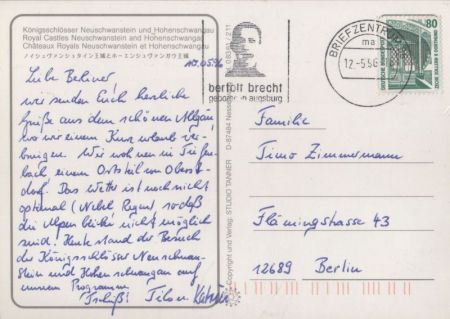 Königsschlösser Neuschwanstein und Hohenschwangau
Royal Castles Neuschwanstein and Hohenschwangau
Châteaux Royals Neuschwanstein et Hohenschwangau
ノイシュヴァンシュタイン王城とホーエンシュヴァンガウ王城
10.05.96
Liebe Berliner!
wir senden Euch herzliche
Grüße aus dem schönen Allgäu
wo wir einen Kurzurlaub ver-
bringen. Wir wohnen in Tiefen-
bach einem Ortsteil von Oberst-
dorf. Das Wetter ist noch nicht
optimal (Nebel Regen) so daß
die Alpen bisher nicht möglich
sind! Heute stand der Besuch
der Königsschlösser Neuschwan-
stein und Hohenschwangau auf
unserem Programm
Tschüß!
bertolt brecht
geboren in augsburg
BRIEFZENTRUM
ma
12-5-96
80
DEUTSCHE BUNDESPOST
D-87484 Nesse
Copyright und Verlag: STUDIO TANNER
Familie
Timo Zimmermann
Flämingstrasse 43
12689 Berlin